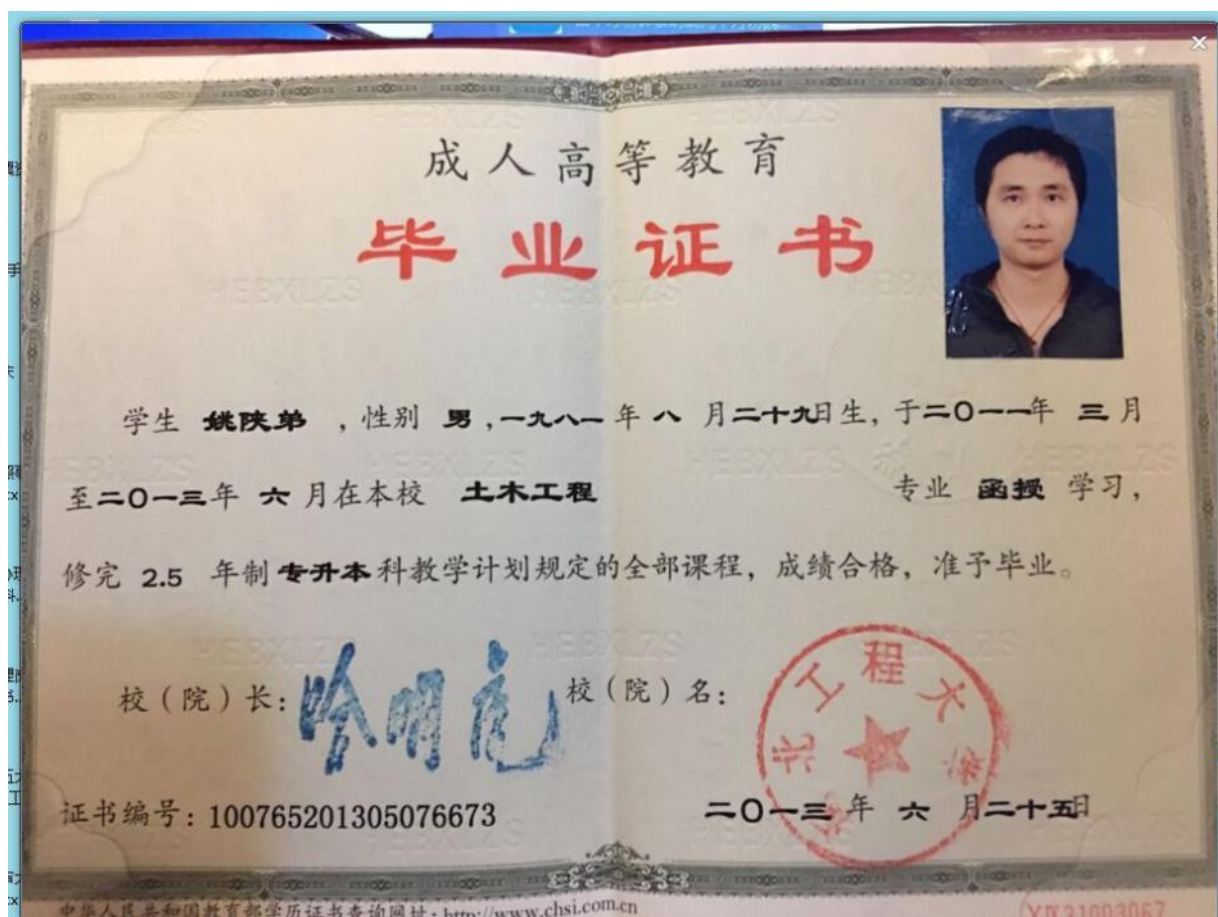 成人高等教育
毕业证书
学生 姚陕弟 ，性别 男，一九八一年 八 月二十九日生，于二〇一一年 三 月
至二〇一三年 六 月在本校 土木工程 专业 函授 学习，
修完 2.5 年制 专升本科教学计划规定的全部课程，成绩合格，准予毕业。
校（院）长： 校（院）名：
北工程大学
证书编号：100765201305076673 二〇一三 年 六 月二十五日
中华人民共和国教育部学历证书查询网址：http://www.chsi.com.cn
HEBXLZS